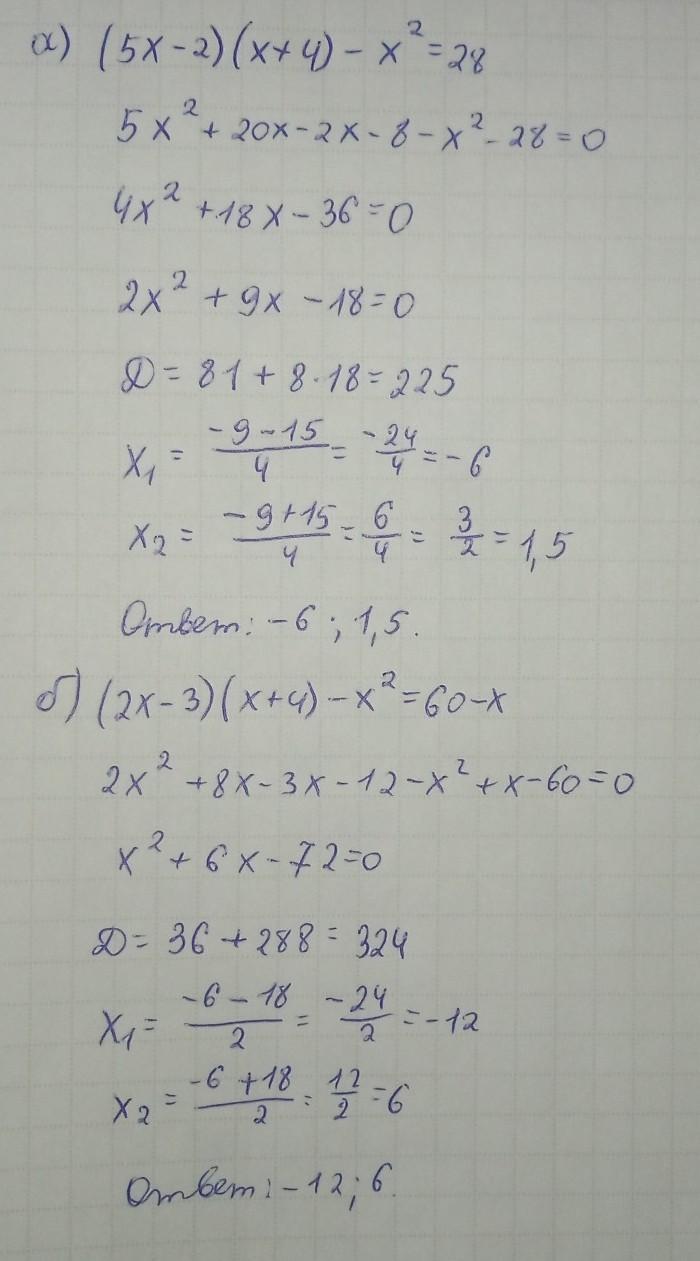 а) (5x-2)(x+4) - x² = 28
5x² + 20x - 2x - 8 - x² - 28 = 0
4x² + 18x - 36 = 0
2x² + 9x - 18 = 0
D = 81 + 8·18 = 225
x₁ = (-9-15)/4 = -24/4 = -6
x₂ = (-9+15)/4 = 6/4 = 3/2 = 1,5
Ответ: -6; 1,5.
б) (2x-3)(x+4) - x² = 60-x
2x² + 8x - 3x - 12 - x² + x - 60 = 0
x² + 6x - 72 = 0
D = 36 + 288 = 324
x₁ = (-6-18)/2 = -24/2 = -12
x₂ = (-6+18)/2 = 12/2 = 6
Ответ: -12; 6.